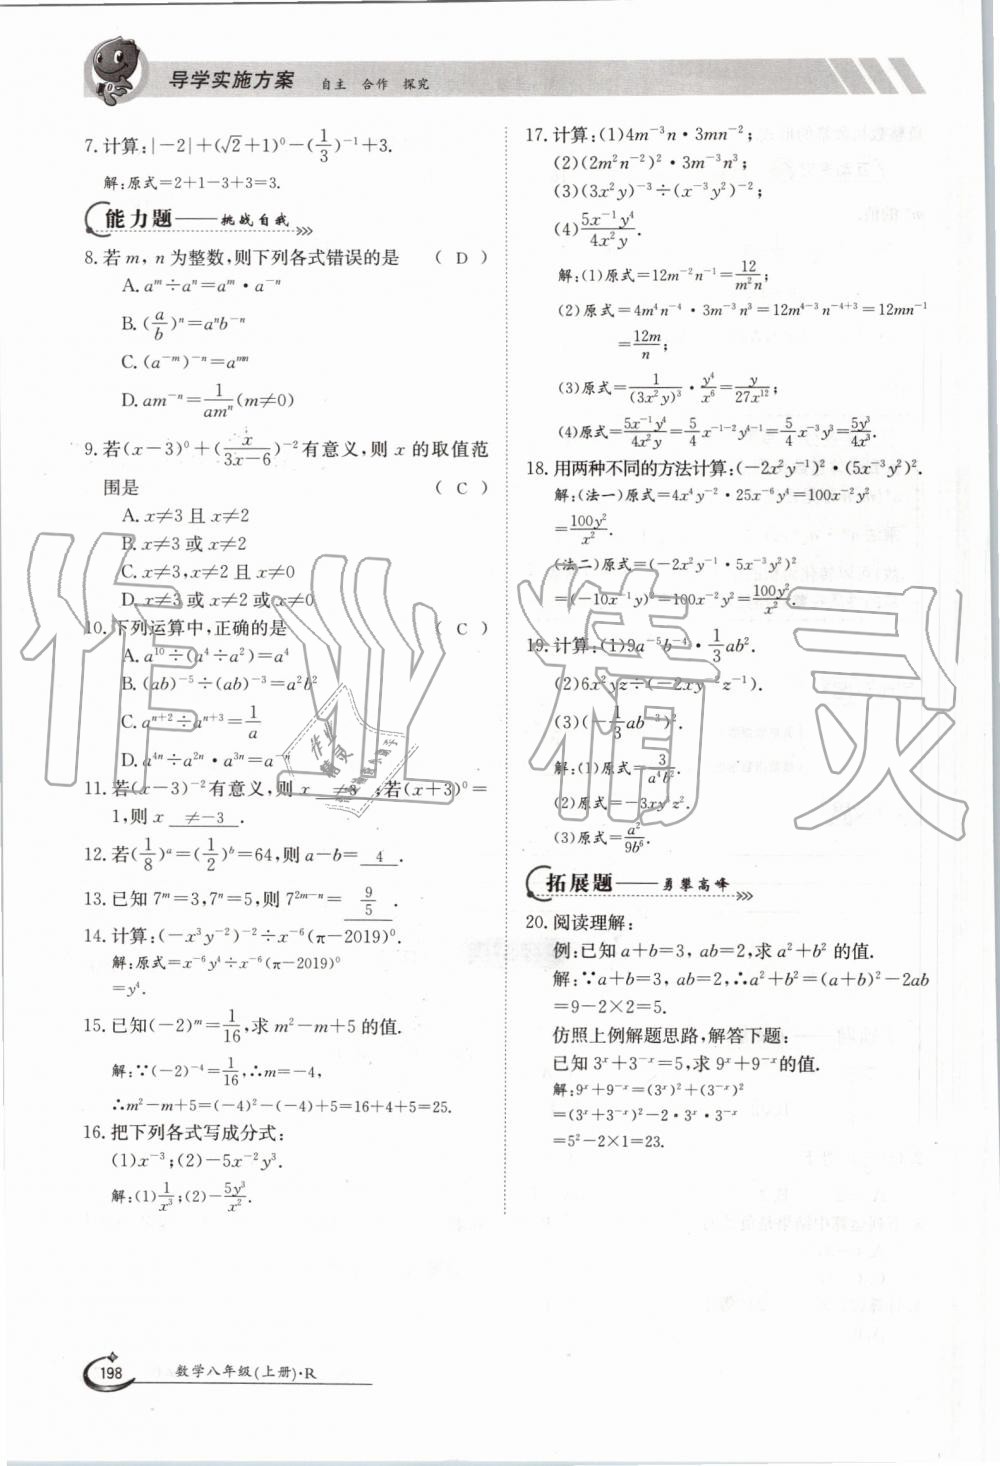 导学实施方案 自主 合作 探究
7.计算:|-2|+(√2+1)⁰-(1/3)⁻¹+3.
解:原式=2+1-3+3=3.
能力题——挑战自我
8.若m,n为整数,则下列各式错误的是 ( D )
A.aᵐ÷aⁿ=aᵐ·a⁻ⁿ
B.(a/b)ⁿ=aⁿb⁻ⁿ
C.(a⁻ᵐ)⁻ⁿ=aᵐⁿ
D.am⁻ⁿ=1/amⁿ(m≠0)
9.若(x-3)⁰+(x/3x-6)⁻²有意义,则x的取值范
围是 ( C )
A.x≠3且x≠2
B.x≠3或x≠2
C.x≠3,x≠2且x≠0
D.x≠3或x≠2或x≠0
10.下列运算中,正确的是 ( C )
A.a¹⁰÷(a⁴÷a²)=a⁴
B.(ab)⁻⁵÷(ab)⁻³=a²b²
C.aⁿ⁺²÷aⁿ⁺³=1/a
D.a⁴ⁿ÷a²ⁿ·a³ⁿ=a⁻ⁿ
11.若(x-3)⁻²有意义,则x ≠3 ;若(x+3)⁰=
1,则x ≠-3 .
12.若(1/8)ᵃ=(1/2)ᵇ=64,则a-b= 4 .
13.已知7ᵐ=3,7ⁿ=5,则7²ᵐ⁻ⁿ= 9/5 .
14.计算:(-x³y⁻²)⁻²÷x⁻⁶(π-2019)⁰.
解:原式=x⁻⁶y⁴÷x⁻⁶(π-2019)⁰
=y⁴.
15.已知(-2)ᵐ=1/16,求m²-m+5的值.
解:∵(-2)⁻⁴=1/16,∴m=-4,
∴m²-m+5=(-4)²-(-4)+5=16+4+5=25.
16.把下列各式写成分式:
(1)x⁻³;(2)-5x⁻²y³.
解:(1)1/x³;(2)-5y³/x².
17.计算:(1)4m⁻³n·3mn⁻²;
(2)(2m²n⁻²)²·3m⁻³n³;
(3)(3x²y)⁻³÷(x⁻³y²)⁻²;
(4)5x⁻¹y⁴/4x²y.
解:(1)原式=12m⁻²n⁻¹=12/m²n;
(2)原式=4m⁴n⁻⁴·3m⁻³n³=12m⁴⁻³n⁻⁴⁺³=12mn⁻¹
=12m/n;
(3)原式=1/(3x²y)³·y⁴/x⁶=y/27x¹²;
(4)原式=5x⁻¹y⁴/4x²y=5/4x⁻¹⁻²y⁴⁻¹=5/4x⁻³y³=5y³/4x³.
18.用两种不同的方法计算:(-2x²y⁻¹)²·(5x⁻³y²)².
解:(法一)原式=4x⁴y⁻²·25x⁻⁶y⁴=100x⁻²y²
=100y²/x².
(法二)原式=(-2x²y⁻¹·5x⁻³y²)²
=(-10x⁻¹y)²=100x⁻²y²=100y²/x².
19.计算:(1)9a⁻⁵b⁻⁴·1/3ab².
(2)6x²yz÷(-2xy⁻²z⁻¹).
(3)(-1/3ab⁻³)².
解:(1)原式=3/a⁴b².
(2)原式=-3xy³z².
(3)原式=a²/9b⁶.
拓展题——勇攀高峰
20.阅读理解:
例:已知a+b=3,ab=2,求a²+b²的值.
解:∵a+b=3,ab=2,∴a²+b²=(a+b)²-2ab
=9-2×2=5.
仿照上例解题思路,解答下题:
已知3ˣ+3⁻ˣ=5,求9ˣ+9⁻ˣ的值.
解:9ˣ+9⁻ˣ=(3ˣ)²+(3⁻ˣ)²
=(3ˣ+3⁻ˣ)²-2·3ˣ·3⁻ˣ
=5²-2×1=23.
198 数学八年级(上册)·R
作业精灵